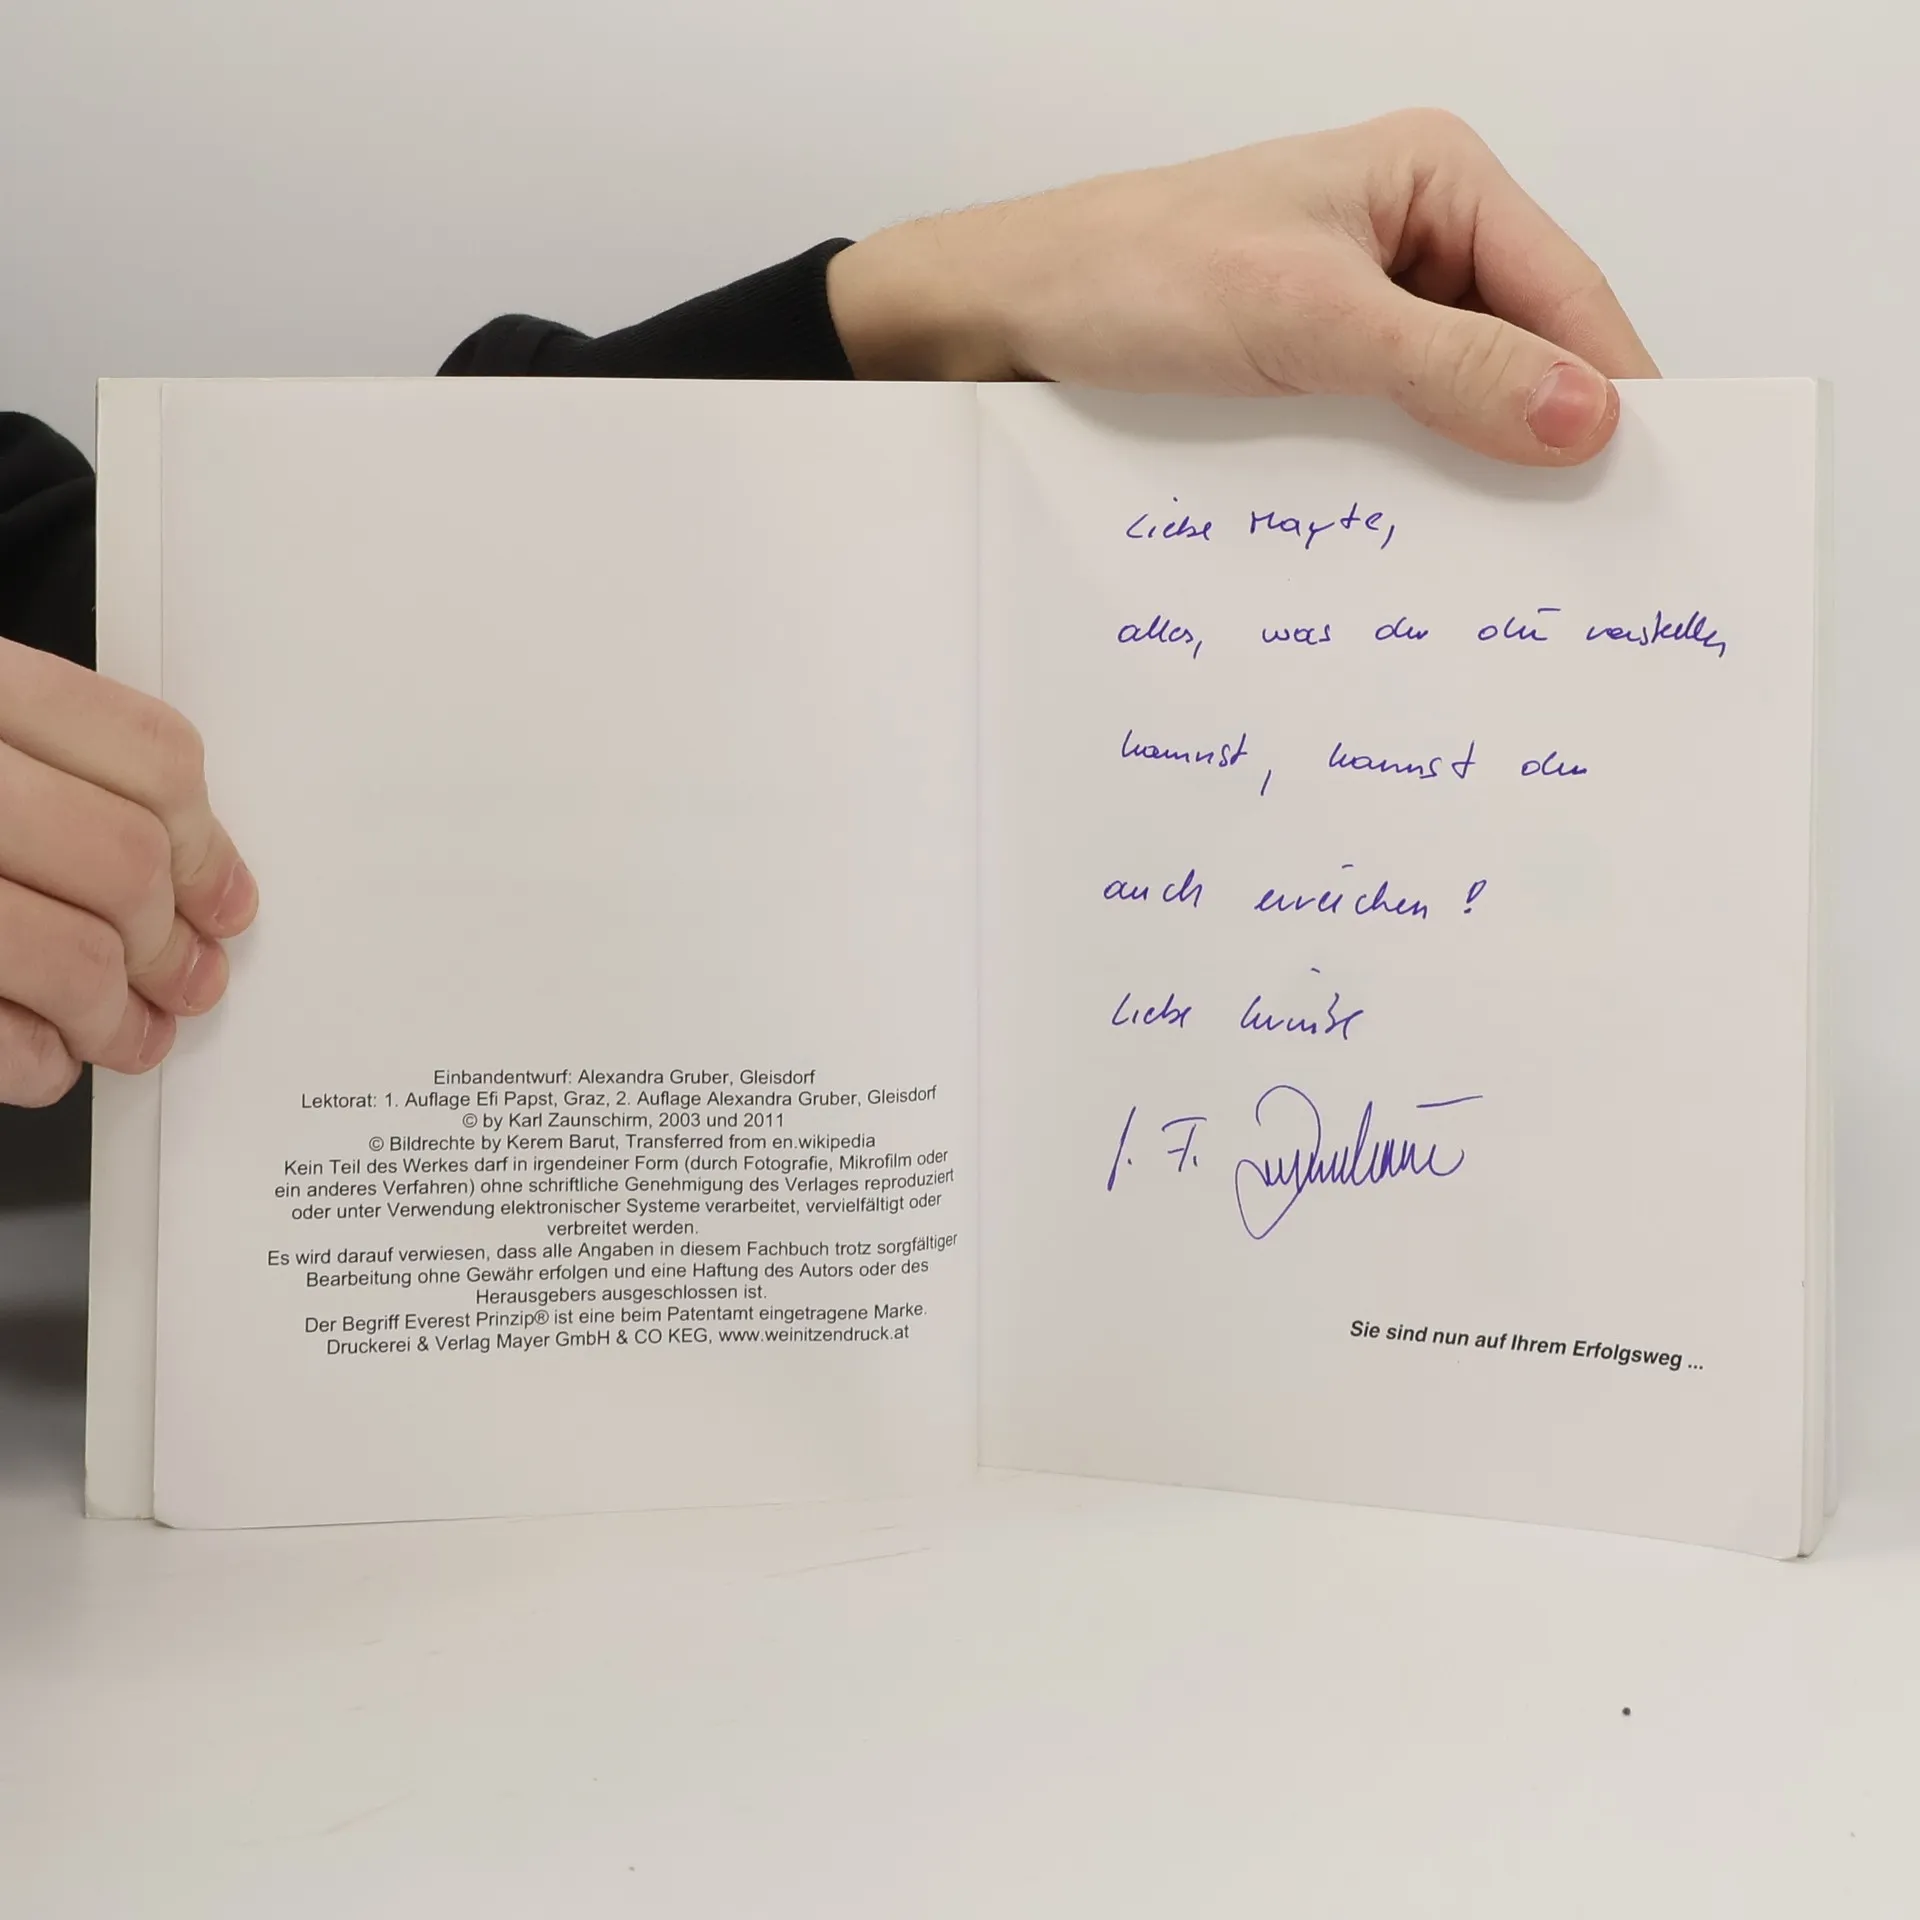 Einbandentwurf: Alexandra Gruber, Gleisdorf
Lektorat: 1. Auflage Efi Papst, Graz, 2. Auflage Alexandra Gruber, Gleisdorf
© by Karl Zaunschirm, 2003 und 2011
© Bildrechte by Kerem Barut, Transferred from en.wikipedia
Kein Teil des Werkes darf in irgendeiner Form (durch Fotografie, Mikrofilm oder
ein anderes Verfahren) ohne schriftliche Genehmigung des Verlages reproduziert
oder unter Verwendung elektronischer Systeme verarbeitet, vervielfältigt oder
verbreitet werden.
Es wird darauf verwiesen, dass alle Angaben in diesem Fachbuch trotz sorgfältiger
Bearbeitung ohne Gewähr erfolgen und eine Haftung des Autors oder des
Herausgebers ausgeschlossen ist.
Der Begriff Everest Prinzip® ist eine beim Patentamt eingetragene Marke.
Druckerei & Verlag Mayer GmbH & CO KEG, www.weinitzendruck.at
Liebe Mayte,
alles, was du dir vorstellen
kannst, kannst du
auch erreichen!
Liebe Grüße
Sie sind nun auf Ihrem Erfolgsweg ...